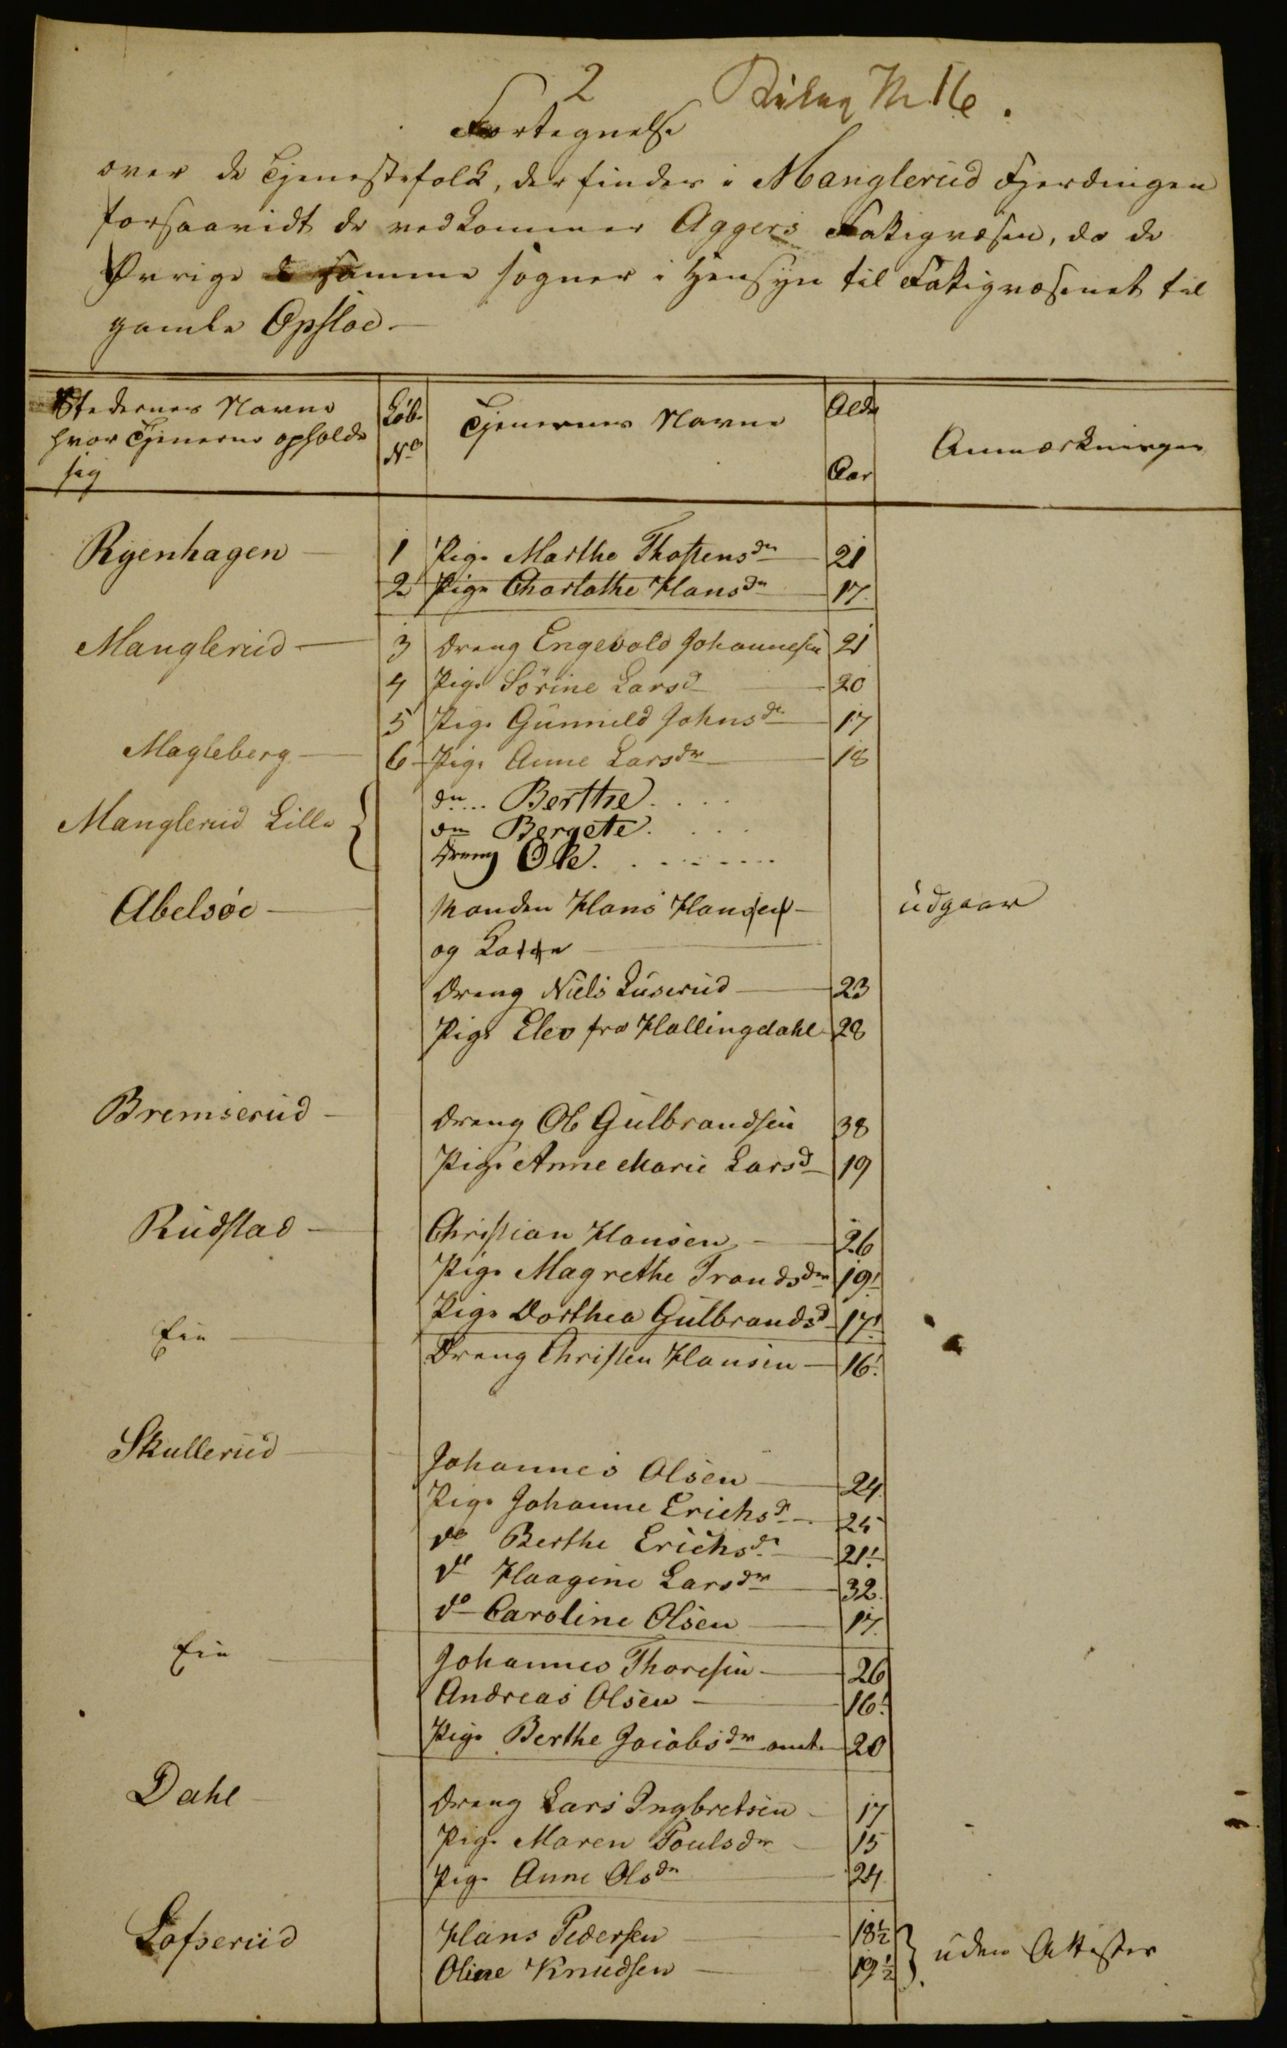 2 Bilag No 16.
Fortegnelse
over de Tjenestefolk, der findes i Manglerud Fjerdingen
forsaavidt de vedkommer Aggers Fattigvæsen, da de
Øvrige samme sogner i Hensyn til Fattigvæsenet til
gamle Opsloe
Stedernes Navne hvor Tjenerne opholde sig | Löb. No | Tjenernes Navne | Alder Aar | Anmærkninger
Ryenhagen 1 Pige Marthe Thostensdr 21
2 Pige Charlothe Hansdr 17.
Manglerud 3 Dreng Engebold Johannesen 21
4 Pige Sörine Larsd 20
5 Pige Gunnild Johnsdr 17
Magleberg 6 Pige Anne Larsdr 18
Manglerud Lille { do... Berthe....
do Bergete....
Dreng Ole........
Abelsöe Manden Hans Hansen udgaar
og
Dreng Niels Luserud 23
Pige Elev fra Hallingdahl 28
Bremserud Dreng Ole Gulbrandsen 38
Pige Anne Marie Larsd 19
Rudstad Christian Hansen 26
Pige Magrethe Trondsdr 19!
Pige Dorthea Gulbrandsd 17!
Eie Dreng Christen Hansen 16!
Skullerud Johannes Olsen 24
Pige Johanne Erichsd 25
do Berthe Erichsdr 21!
do Haagine Larsdr 32.
do Caroline Olsen 17.
Eie Johannes Thoresen 26
Andreas Olsen 16!
Pige Berthe Jacobsdr 20
Dahl Dreng Lars Ingbretsen 17
Pige Maren Poulsdr 15
Pige Anne Olsdr 24
Lofserud Hans Pedersen 18½ } uden Attester
Oline Knudsen 19½